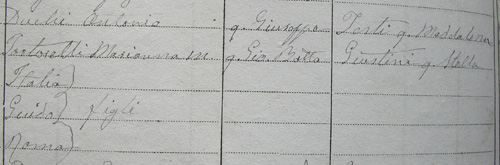 Antonio q. Giuseppe Torti q. Maddalena
Tortorelli Marianna in q. Gio. Batta Giustini q. Stella
Italia)
Guido) figli
Norma)